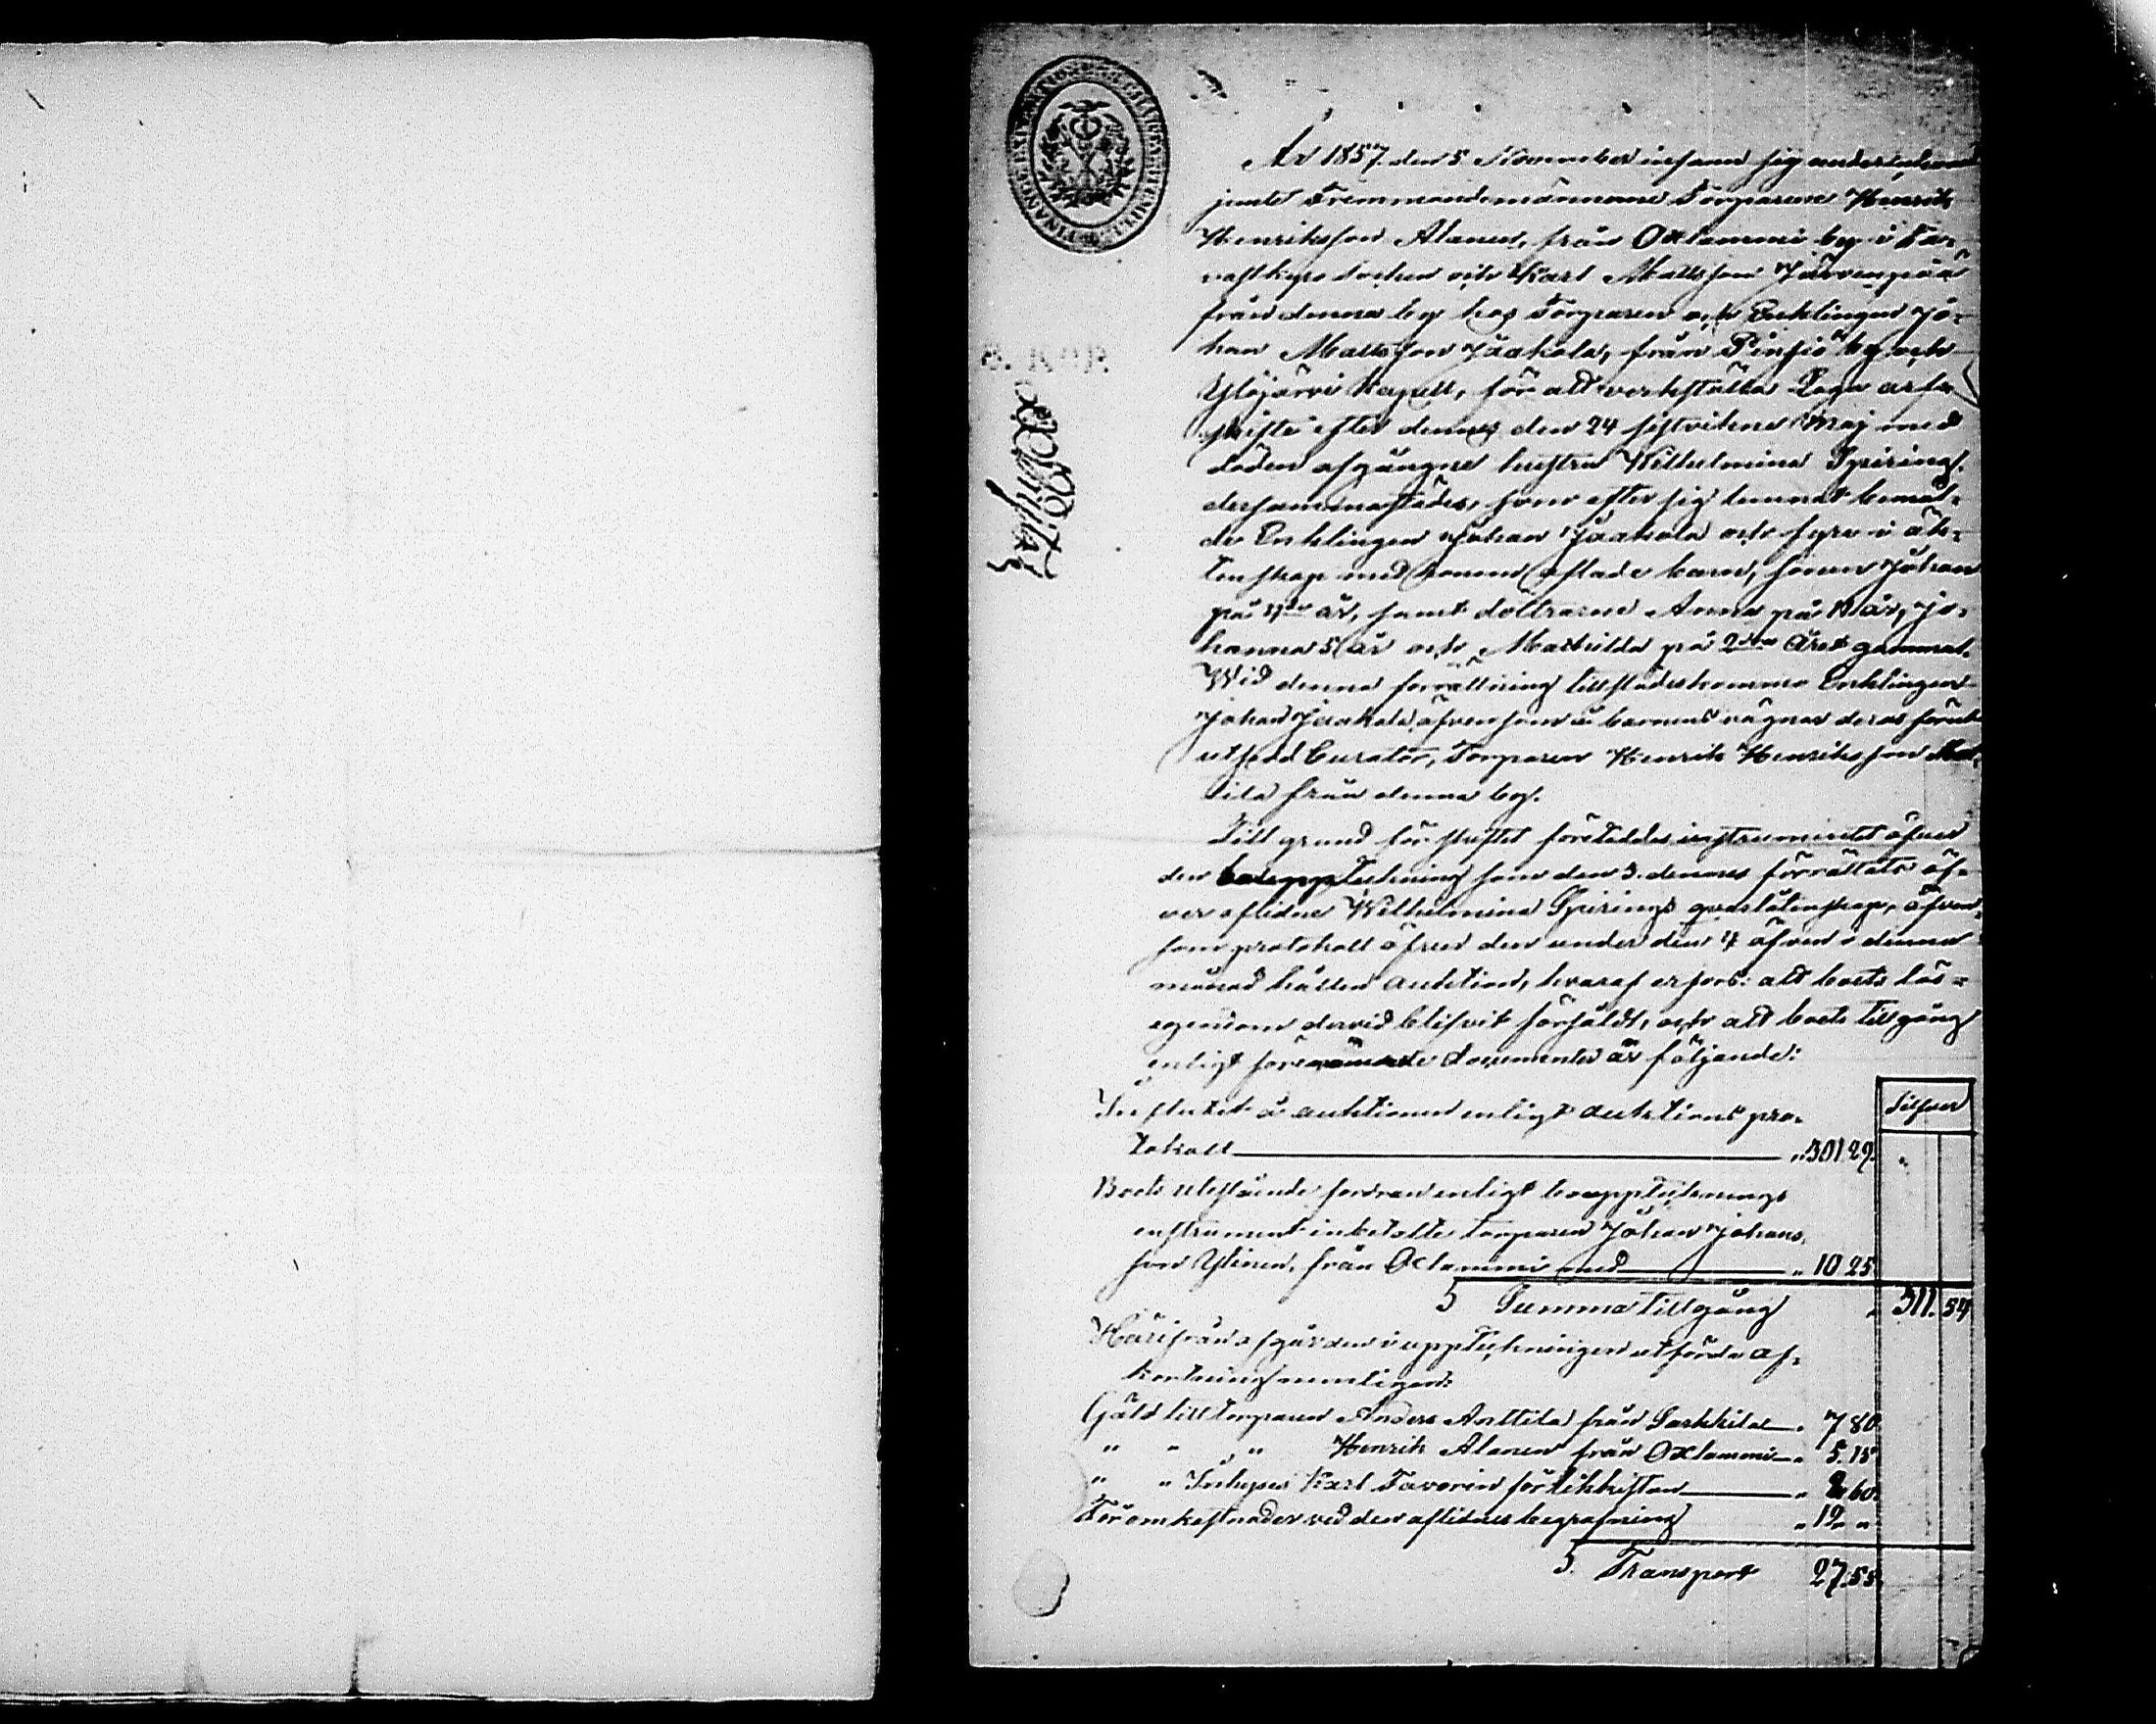 År 1857. den 5 November infann sig undertecknad
jemte Fremmandemännerne Torparene Henrik
Henriksson Alanen, från Oxlammi by i Ta-
vastkyro socken och Karl Mattsson Järvenpää
från denna by hos Torparen och Enklingen Jo-
han Mattsson Jaakola, från Pinsiö by och
Ylöjärvi Kapell, för att verkställa Laga arf-
skifte efter dennes den 24 sistvikne Maj med
döden afgångne hustru Wilhelmina Spiring
dersammastädes, som efter sig lemnat bemäl-
de Enklingen Johan Jaakola och fyra i äk-
tenskap med honom aflade barn, sonen Johan
på år, samt döttrarne Anna på 10 år, Jo-
hanna 5 år och Mathilda på 2dra Året gammal.
Wid denna förrättning tillstädeskommo Enklingen
Johan Jaakola äfvensom å barnens vägnar deras förut
utsedd Curator, Torparen Henrik Henriksson
från denna by.
Till grund för skiftet företeddes instrumentet öfver
den bouppteckning som den 3. dennes förrättats öf-
ver aflidne Wilhelmina Spirings qvarlåtenskap, äfven-
som protokoll öfver den under den 4 äfven i denna
månad hållen auktion, hvaraf erfors: att boets lös-
egendom dervid blifvit försåldt, och att boets tillgång
enligt förenämnde documenter är följande:
Silfver
Influtit å auktionen enligt auktions pro-
tokoll „ 301 29. „
Boets utestående fordran enligt bouppteknings
instrument inbetalte torparen Johan Johans-
son Ylinen, från Oxlammi med „ 10 25
S Summa tillgång „ 311. 54
Härifrån afgår den i uppteckningen utförde af-
kortning nemligen:
Gäld till torparen Anders Anttila från Sarkkila „ 7 80.
„ „ „ Henrik Alanen från Oxlammi „ 5. 15
„ „ Inhyses Karl Favorin för likkistan „ 2 60.
För omkostnader ved den aflidnes begrafning „ 12 „ „
S. Transport 27. 55